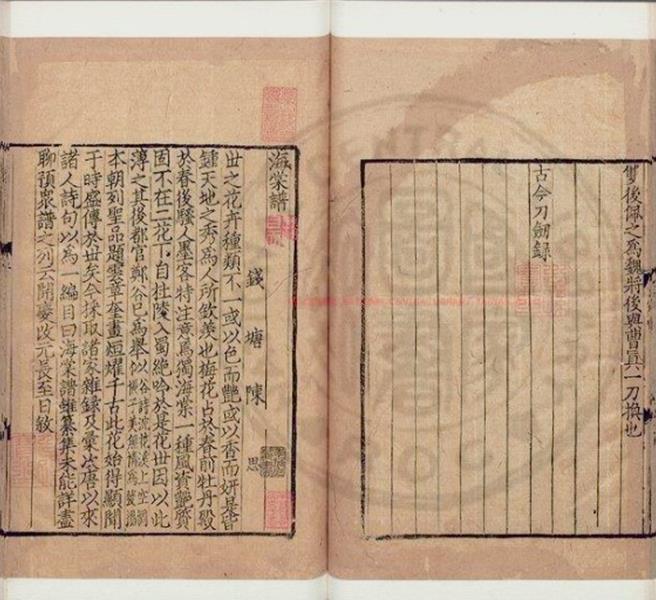 雙後佩之爲魏將後與曹真一刀換也
古今刀劒錄
海棠譜
錢塘陳思
世之花卉種類不一或以色而艷或以香而妍是皆
鍾天地之秀爲人所欽羡也梅花占於春前牡丹殿
於春後騷人墨客特注意焉獨海棠一種風資艷質
固不在二花下自杜陵入蜀絶吟於是花世因以此
薄之其後都官鄭谷已爲舉似
本朝列聖品題雲章奎畫烜耀千古此花始得顯聞
于時盛傳於世矣今採取諸家雜錄及彙次唐以來
諸人詩句以爲一編目曰海棠譜雖纂集未能詳盡
聊預衆譜之列云開慶改元長至日敘